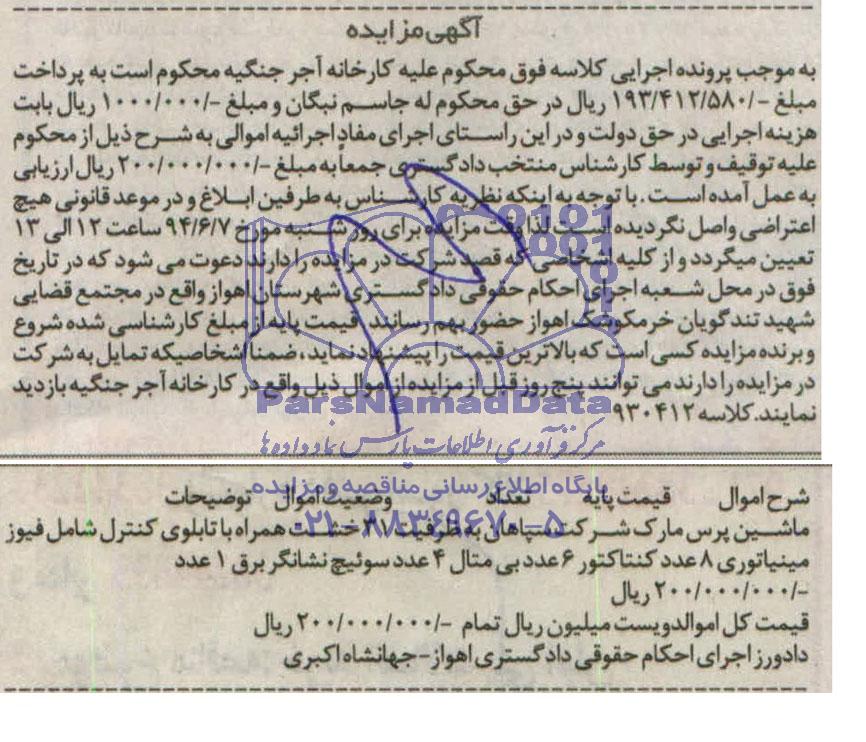 آگهی مزایده
به موجب پرونده اجرایی کلاسه فوق محکوم علیه کارخانه آجر جنگیه محکوم است به پرداخت
مبلغ -/۱۹۳/۴۱۲/۵۸۰ ریال در حق محکوم له جاسم نبگان و مبلغ -/۱۰۰۰/۰۰۰ ریال بابت
هزینه اجرایی در حق دولت و در این راستای اجرای مفاد اجرائیه اموالی به شرح ذیل از محکوم
علیه توقیف و توسط کارشناس منتخب دادگستری جمعاً به مبلغ -/۲۰۰/۰۰۰/۰۰۰ ریال ارزیابی
به عمل آمده است. با توجه به اینکه نظریه کارشناس به طرفین ابلاغ و در موعد قانونی هیچ
اعتراضی واصل نگردیده است لذا وقت مزایده برای روز شنبه مورخ ۹۴/۶/۷ ساعت ۱۲ الی ۱۳
تعیین میگردد و از کلیه اشخاصی که قصد شرکت در مزایده را دارند دعوت می شود که در تاریخ
فوق در محل شعبه اجرای احکام حقوقی دادگستری شهرستان اهواز واقع در مجتمع قضایی
شهید تندگویان خرمکوشک اهواز حضور بهم رسانند. قیمت پایه از مبلغ کارشناسی شده شروع
و برنده مزایده کسی است که بالاترین قیمت را پیشنهاد نماید، ضمنا اشخاصیکه تمایل به شرکت
در مزایده را دارند می توانند پنج روز قبل از مزایده از اموال ذیل واقع در کارخانه آجر جنگیه بازدید
نمایند. کلاسه ۹۳۰۴۱۲
ParsNamadData
مرکز فرآوری اطلاعات پارس نماد داده ها
پایگاه اطلاع رسانی مناقصه و مزایده
شرح اموال قیمت پایه تعداد وضعیت اموال توضیحات
۰۲۱-۸۸۳۴۹۶۷۰-۵
ماشین پرس مارک شرکت سپاهان به ظرفیت ۳۱ خشت همراه با تابلوی کنترل شامل فیوز
مینیاتوری ۸ عدد کنتاکتور ۶ عدد بی متال ۴ عدد سوئیچ نشانگر برق ۱ عدد
-/۲۰۰/۰۰۰/۰۰۰ ریال
قیمت کل اموال دویست میلیون ریال تمام -/۲۰۰/۰۰۰/۰۰۰ ریال
دادورز اجرای احکام حقوقی دادگستری اهواز-جهانشاه اکبری